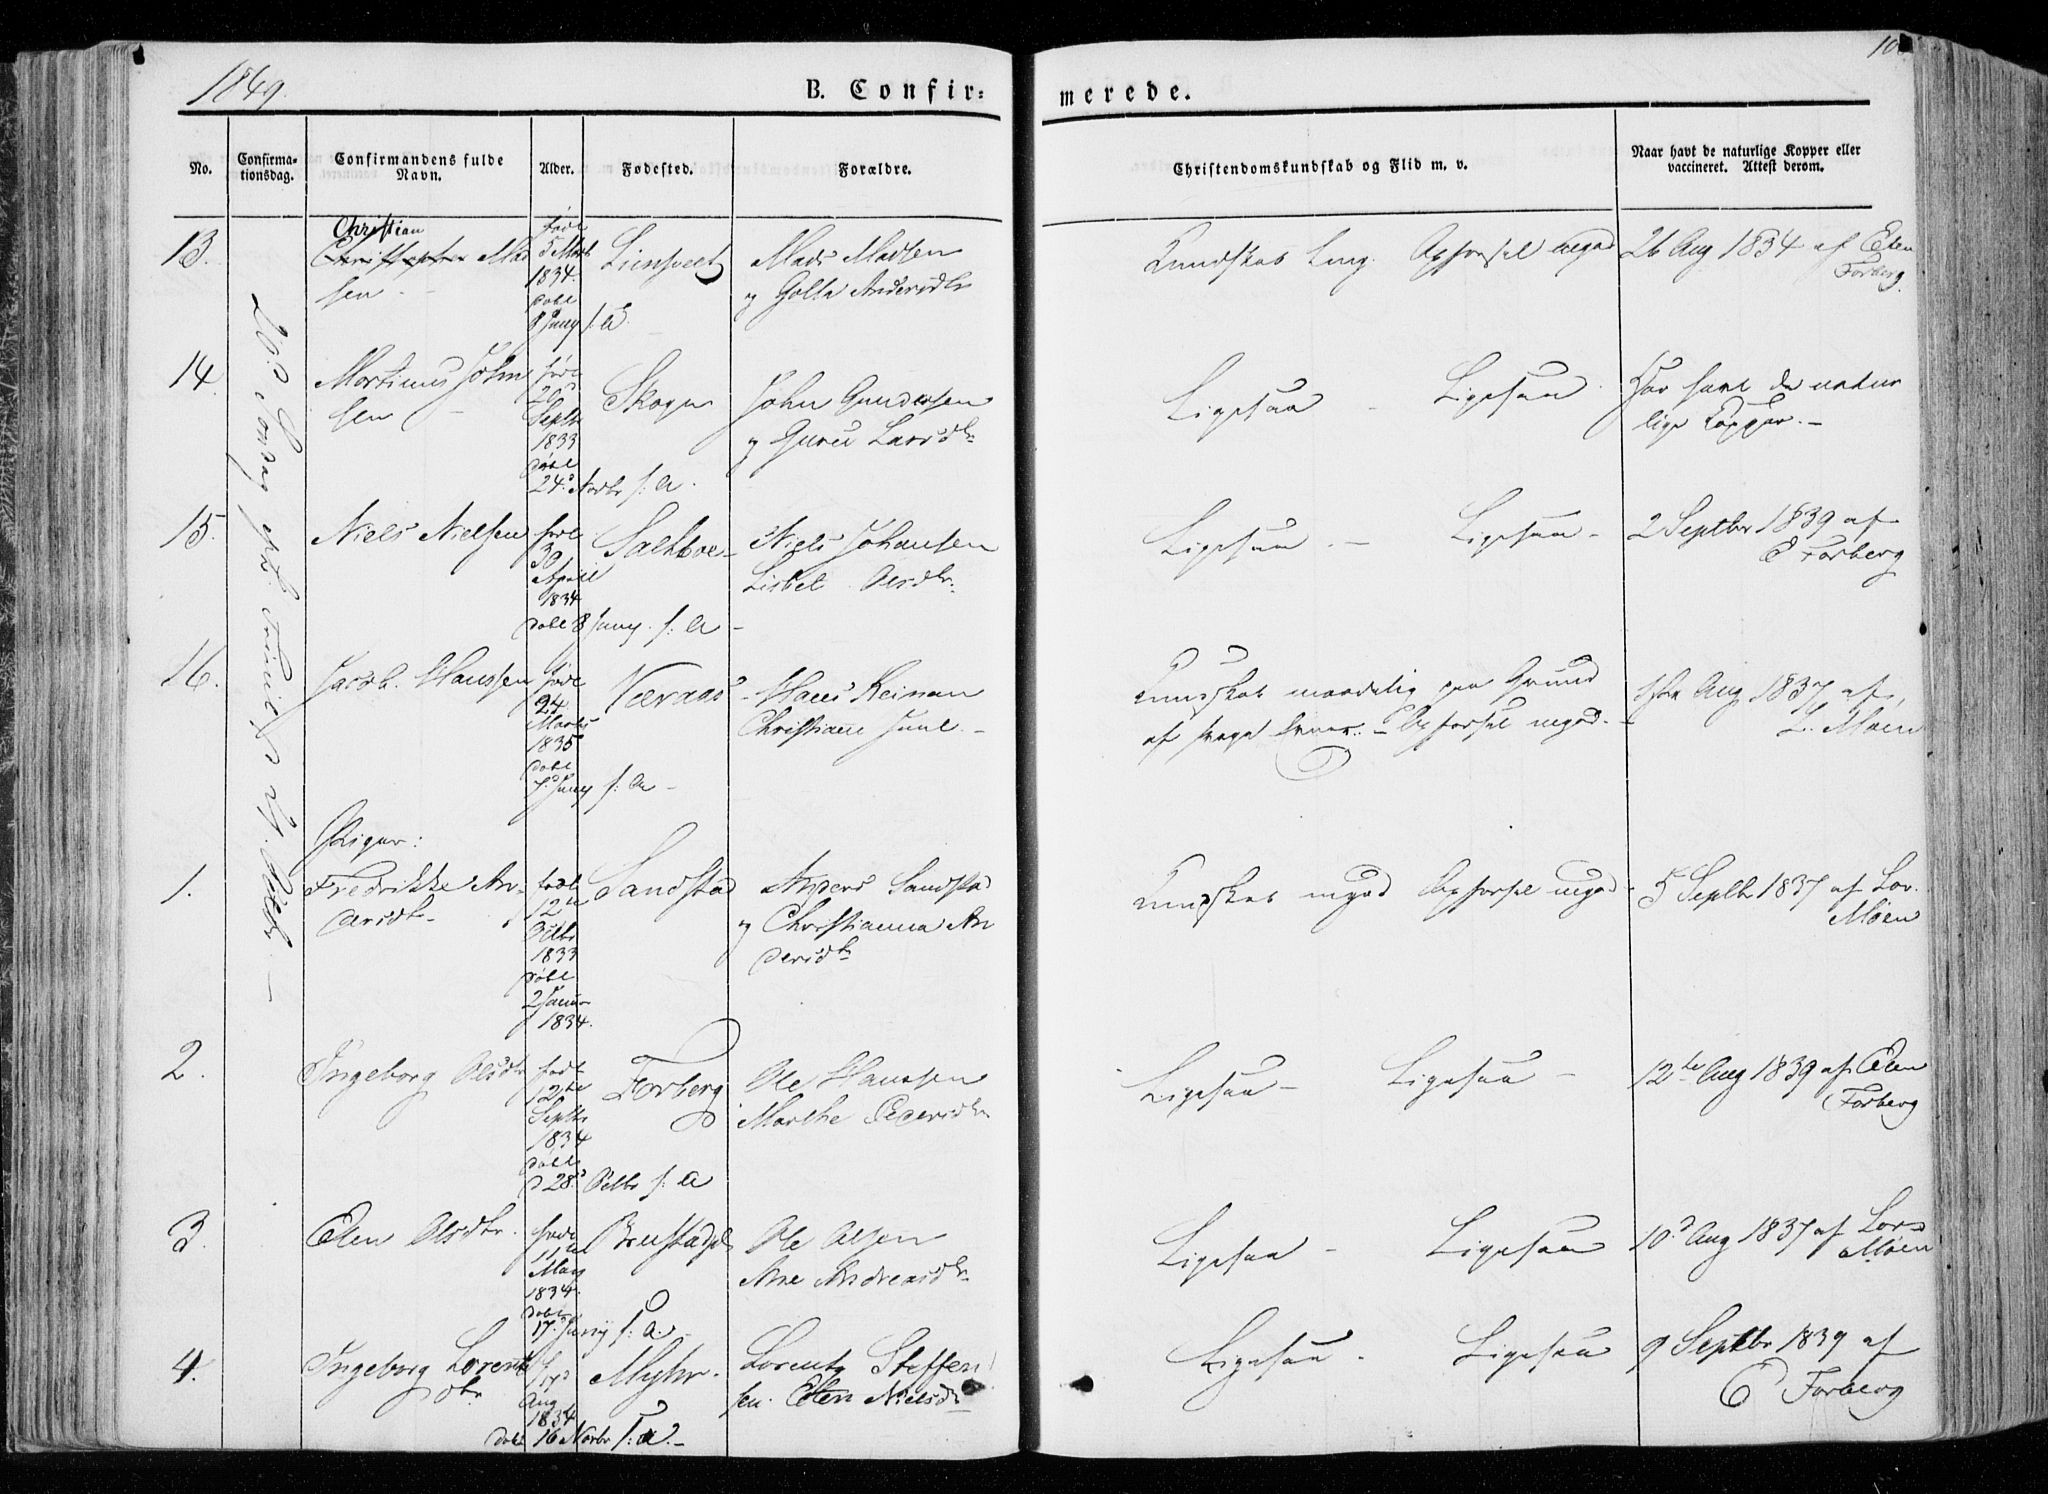 1849.
B. Confir=
merede.
No.
Confirma-
tionsdag.
Confirmandens fulde
Navn.
Alder.
Fødested.
Forældre.
Christendomskundskab og Flid m. v.
Naar havt de naturlige Kopper eller
vaccineret. Attest derom.
13.
Christian
Christopher Mad
sen
født
5 Marts
1834.
døbt
8 Juny s: A.
Mads Madsen
og Golla Andersdtr
Kundskab Opførsel megod
26 Aug 1834 af Elen
Forberg
14.
Martinus John
sen
født
20d
Septbr
1833
døbt
24d Novbr s: A.
Skogn
John Gundersen
og Guru Larsdtr
Ligesaa - Ligesaa.
Har havt de natur
lige Kopper. -
15.
Niels Nielsen
født
30
April
1834
døbt 8 Juny. s: A -
Saltboe
Niels Johansen
Lisbet Olsdtr:
Ligesaa. - Ligesaa -
2 Septbr 1839 af
E Forberg
16.
Jacob. Hanssen
født
24
Marts
1835
døbt
7d Juny s: A -
Væraas
Hans Reinan
Christiane Juul. -
Kundskab maadelig paa Grund
af svage Evner. - Opførsel megod. -
Aug 1837 af,
L. Møen
Piger:
1.
Fredrikke An-
dersdtr -
født
12te
Octbr
1833
døbt
2 Januar
1834.
Sandstad
Anders Sandstad
og Christianna An
dersdtr
Kundskab megod Opførsel megod
5 Septbr 1837 af Lor.
Møen
2.
Ingeborg Olsdtr
født
12te
Septbr
1834
døbt
d 28d Octbr s: A
Forberg
Ole Hanssen
Marthe Pedersdtr
Ligesaa - Ligesaa -
12te Aug 1839 af Elen
Forberg
3.
Elen Olsdtr.
født
11te
May
1834.
døbt
17. Juny s: A. -
Ole Olsen
Ane Andreasdtr
Ligesaa - Ligesaa
10d Aug 1837 af Lor
Møen
4.
Ingeborg Lorents
dtr.
17d
Aug
1834
døbt 16 Novbr s: A. -
Myhr.
Lorents Steffen
sen. Elen Nielsdtr
Ligesaa - Ligesaa
9 Septbr 1839 af
E Forberg